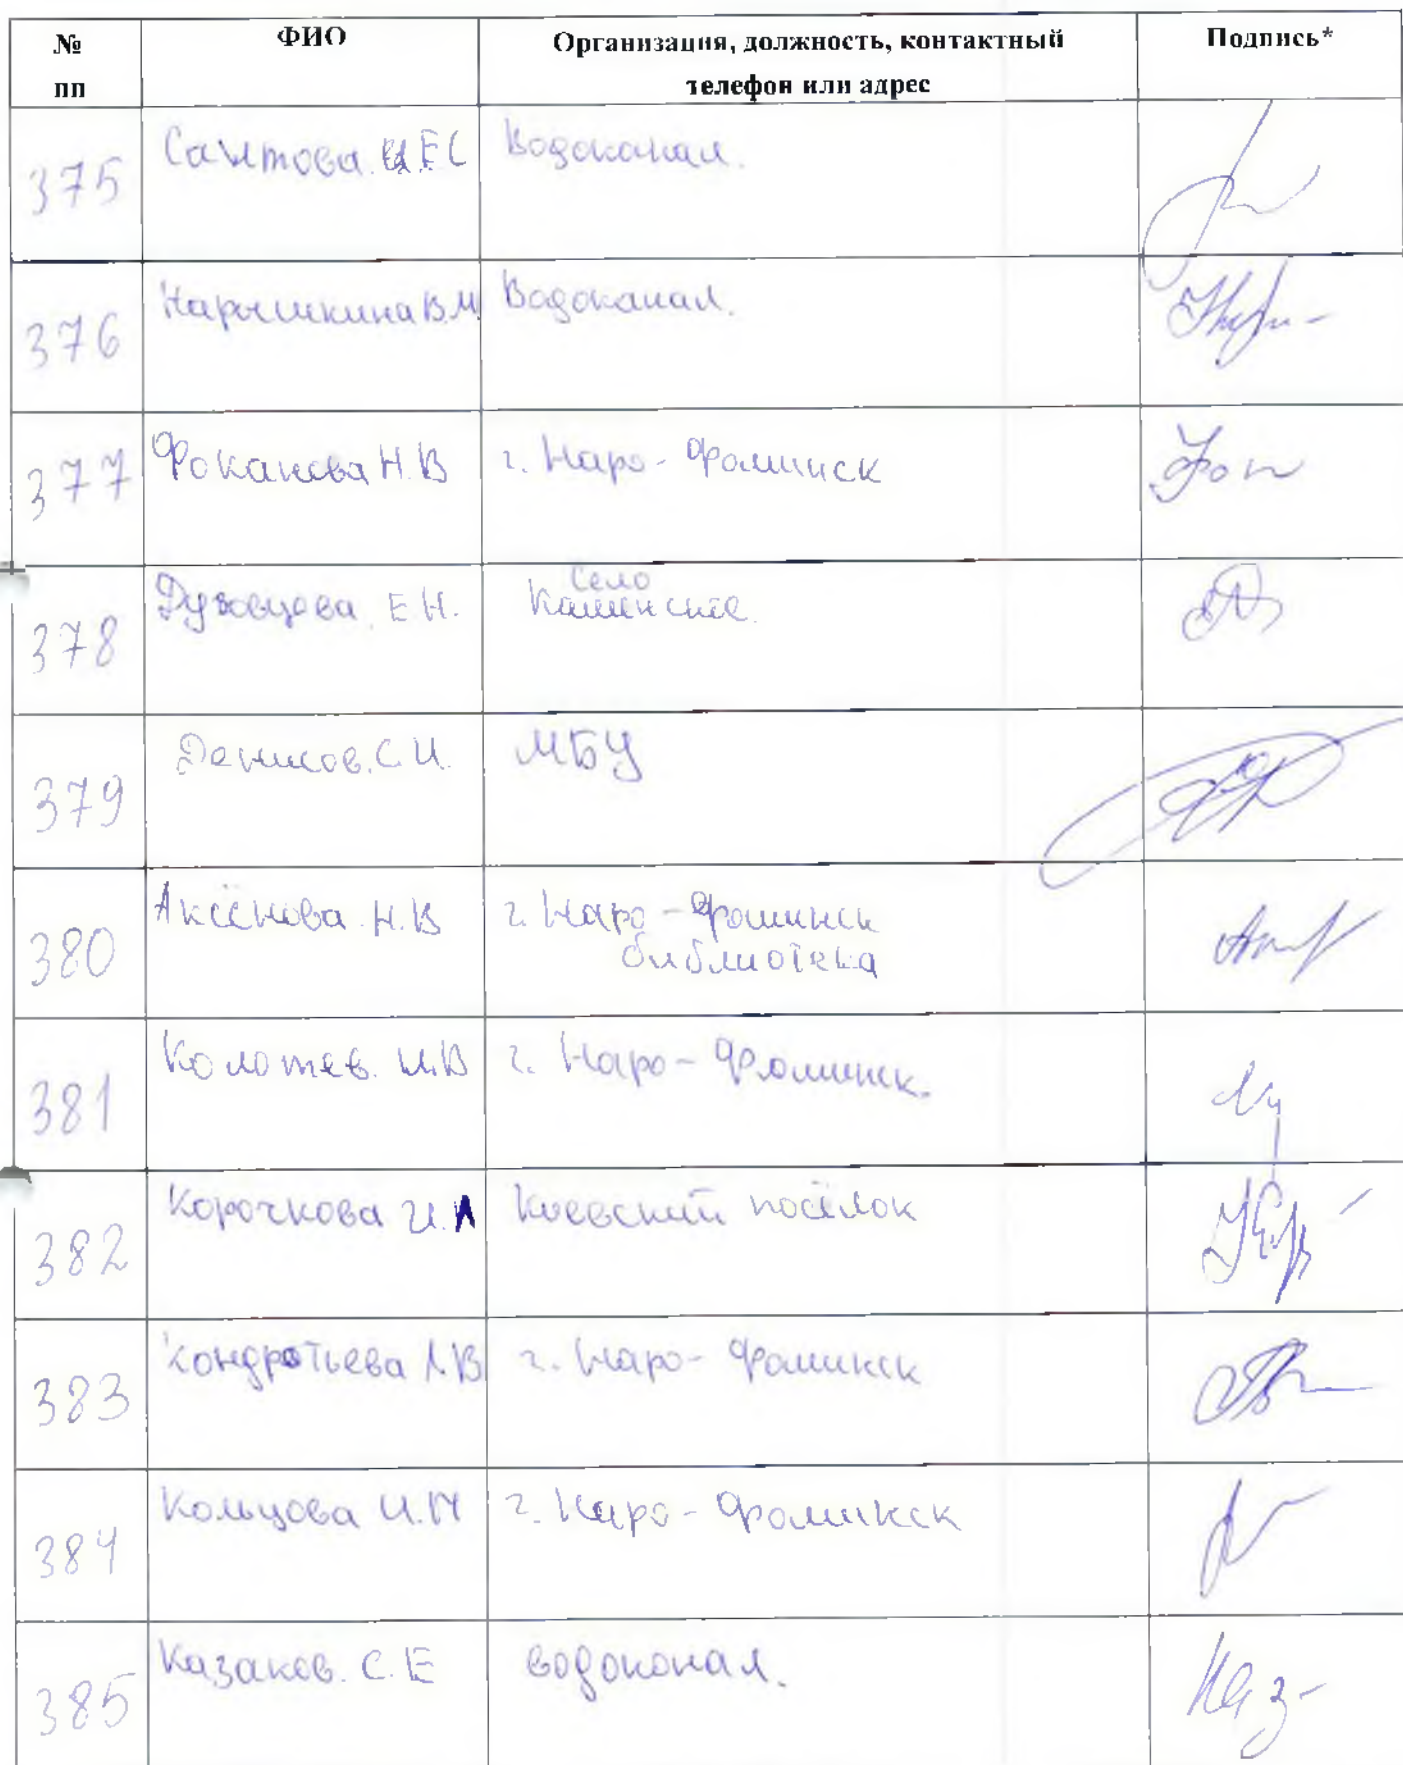 № пп ФИО Организация, должность, контактный телефон или адрес Подпись*
375 Саитова Е С Водоканал.
376 Нарышкина В.М Водоканал.
377 Фоканова Н.В г. Наро-Фоминск
378 Е.Н. село Каменское.
379 Денисов. С.И. МБУ
380 Аксёнова Н.В г. Наро-Фоминск
библиотека
381 Колотев. И.В г. Наро-Фоминск.
382 Корочкова И.А Киевский посёлок
383 Кондротьева Л.В г. Наро-Фоминск
384 Кольцова И.П г. Наро-Фоминск
385 Казаков. С.Е водоконал.